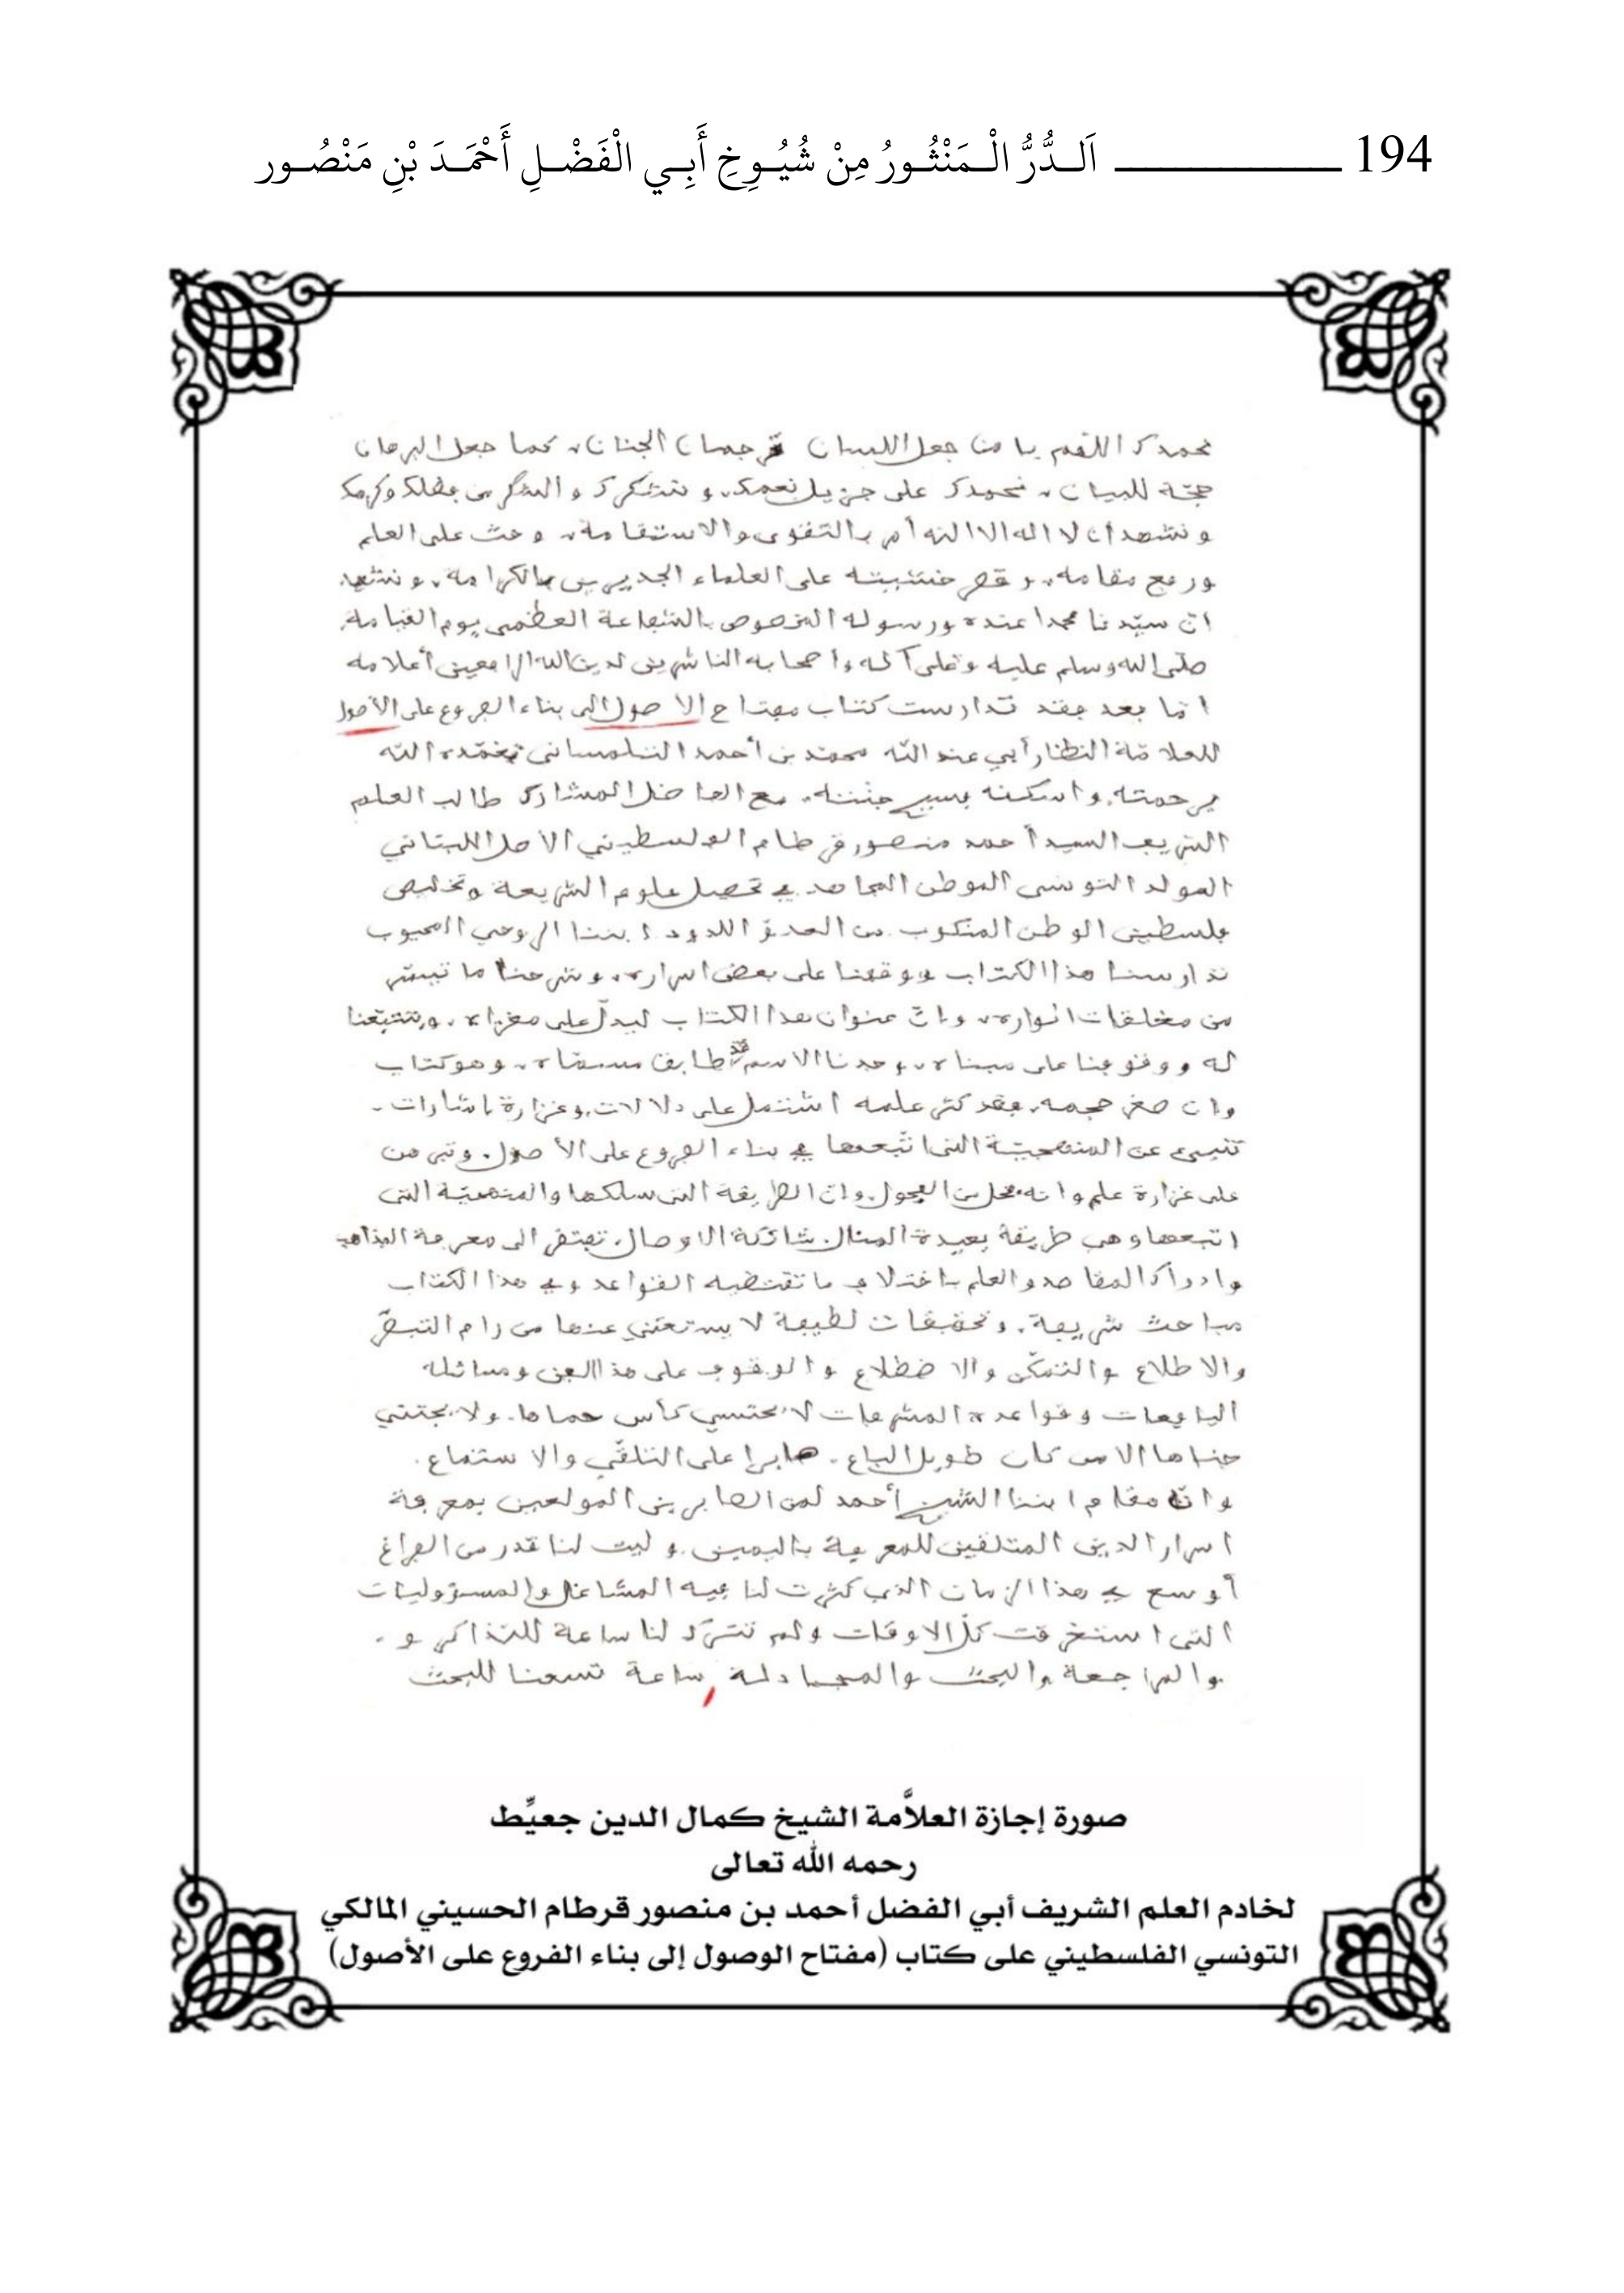 194 ــــــــــــــــ اَلــدُّرُّ الْـمَنْثُـورُ مِنْ شُيُـوخِ أَبِـي الْفَضْـلِ أَحْمَـدَ بْنِ مَنْصُـور
نحمدك اللهم يا من جعل اللسان ترجمان الجنان، كما جعل البرهان
حجّة للبيان، نحمدك على جزيل نعمك، ونتشكرك والشكر من فضلك وكرمك
ونشهد ان لا اله الا الله أمر بالتقوى والاستقامة، وحث على العلم
ورفع مقامه، وقصر خشيته على العلماء الجديرين بالكرامة، ونشهد
انّ سيّدنا محمدا عبده ورسوله المخصوص بالشفاعة العظمى يوم القيامة
صلّى الله وسلم عليه وعلى آله واصحابه الناشرين لدين الله الرافعين أعلامه
امّا بعد فقد تدارست كتاب مفتاح الاصول الى بناء الفروع على الأصول
للعلامّة النظار أبي عبد اللّه محمّد بن أحمد التلمساني تغمّده الله
برحمته، واسكنه فسيح جنته، مع الفاضل المشارك طالب العلم
الشريف السيد أحمد منصور قرطام الفلسطيني الأصل اللبناني
المولد التونسي الموطن المجاهد في تحصيل علوم الشريعة وتخليص
فلسطين الوطن المنكوب من العدوّ اللدود ابننا الروحي المحبوب
تدارسنا هذا الكتاب ووقفنا على بعض اسراره، وشرحنا ما تيسّر
من مغلقات انواره، وانّ عنوان هذا الكتاب ليدلّ على مغزاه، وبتتبّعنا
له ووقوفنا على مبناه، وجدنا الاسم قد طابق مسمّاه، وهو كتاب
وان صغر حجمه، فقد كثر علمه اشتمل على دلالات، وغزارة اشارات
تنبىء عن المنهجيّة التى اتّبعها في بناء الفروع على الأصول. وتبرهن
على غزارة علم وانه فحل من الفحول، وان الطريقة التى سلكها والمنهجيّة التى
اتبعها وهي طريقة بعيدة المنال شائكة الاوصال، تفتقر الى معرفة المذاهب
وادراك المقاصد والعلم باختلاف ما تقتضيه القواعد وفي هذا الكتاب
مباحث شريفة، وتحقيقات لطيفة لا يستغني عنها من رام التبصّر
والاطلاع والتمكّن والاضطلاع والوقوف على هذا الفن ومسائله
اليافعات وقواعده المشرفات لا يحتسي كأس حماها، ولا يجتني
جناها الا من كان طويل الباع، صابرا على التلقّي والاستماع.
وانّ مقام ابننا الشيخ أحمد لمن الصابرين المولعين بمعرفة
اسرار الدين المتلقين للمعرفة باليمين، وليت لنا قدر من الفراغ
أوسع في هذا الزمان الذي كثرت لنا فيه المشاغل والمسؤوليات
التى استغرقت كلّ الاوقات ولم تترك لنا ساعة للتذاكر و
والمراجعة والبحث والمجادلة، ساعة تسعنا للبحث
صورة إجازة العلاَّمة الشيخ كمال الدين جعيِّط
رحمه الله تعالى
لخادم العلم الشريف أبي الفضل أحمد بن منصور قرطام الحسيني المالكي
التونسي الفلسطيني على كتاب (مفتاح الوصول إلى بناء الفروع على الأصول)